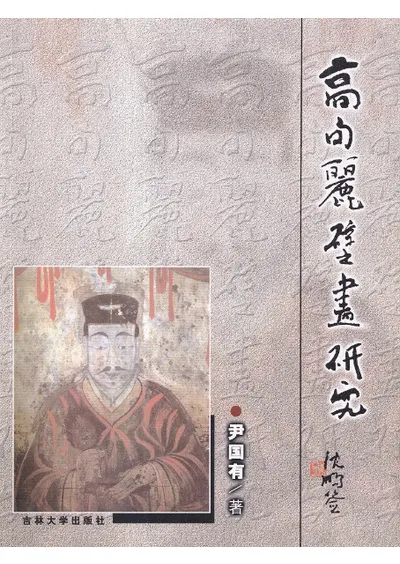 高句麗壁畫研究
沈鹏签
尹国有／著
吉林大学出版社